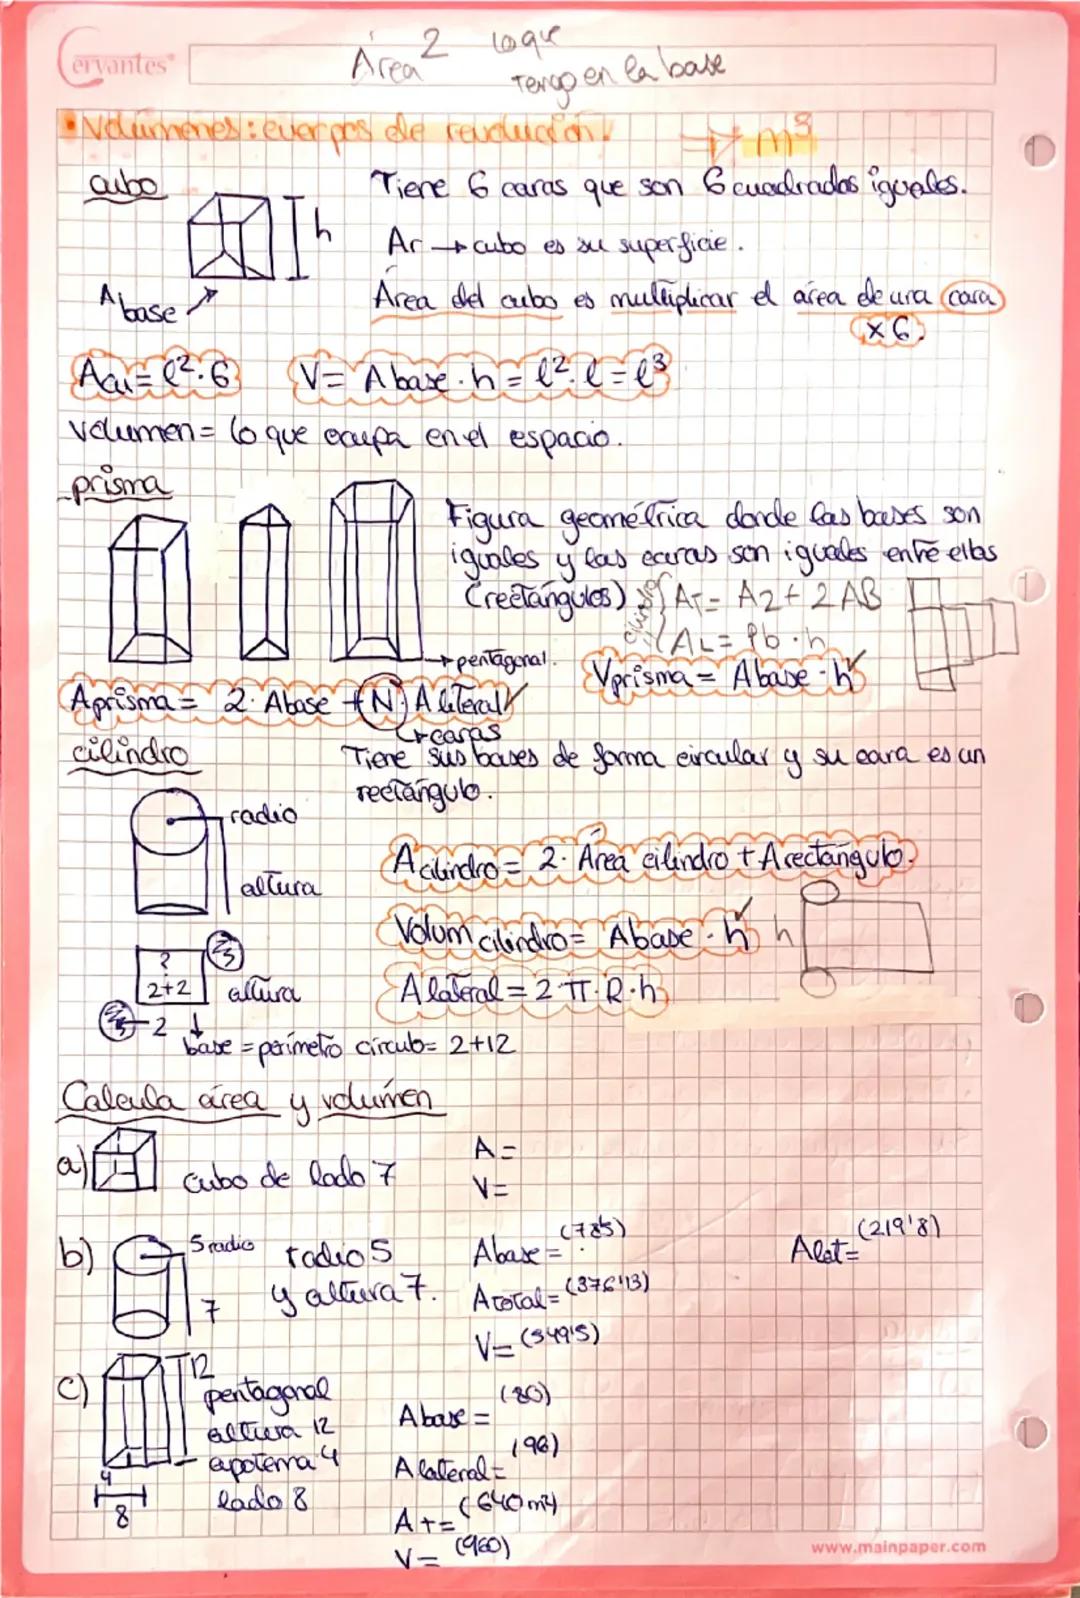 Cervantes®
Área² lo que
Tengo en la base
• Volúmenes: cuerpos de revolución. → m³
cubo
Tiene 6 caras que son 6 cuadrados iguales.
h
Ar → cubo es su superficie.
A base
Área del cubo es multiplicar el área de una cara
x 6.
Acu = l²·6 V = Abase · h = l²·l = l³
volumen = lo que ocupa en el espacio.
prisma
Figura geométrica donde las bases son
iguales y las caras son iguales entre ellas
(rectángulos)
cilindro
AT = A2 + 2AB
AL = Pb · h
→ pentagonal.
Vprisma = Abase · h
Aprisma = 2 · Abase + N · A lateral
→ caras
cilindro
Tiene sus bases de forma circular y su cara es un
rectángulo.
radio
altura
A cilindro = 2 · Área cilindro + A rectángulo.
Volum cilindro = Abase · h
h
?
2+2
altura
A lateral = 2·π·R·h
2
base = perímetro círculo = 2+12
Calcula área y volúmen
a) cubo de lado 7
A =
V =
b) 5 radio
radio 5
y altura 7.
7
Abase = (78'5)
Alat = (219'8)
Atotal = (376'13)
V = (549'5)
c) 12
pentagonal
altura 12
apotema 4
lado 8
4
8
Abase = (80)
Alateral = (96)
A+ = (640 m²)
V = (960)
www.mainpaper.com